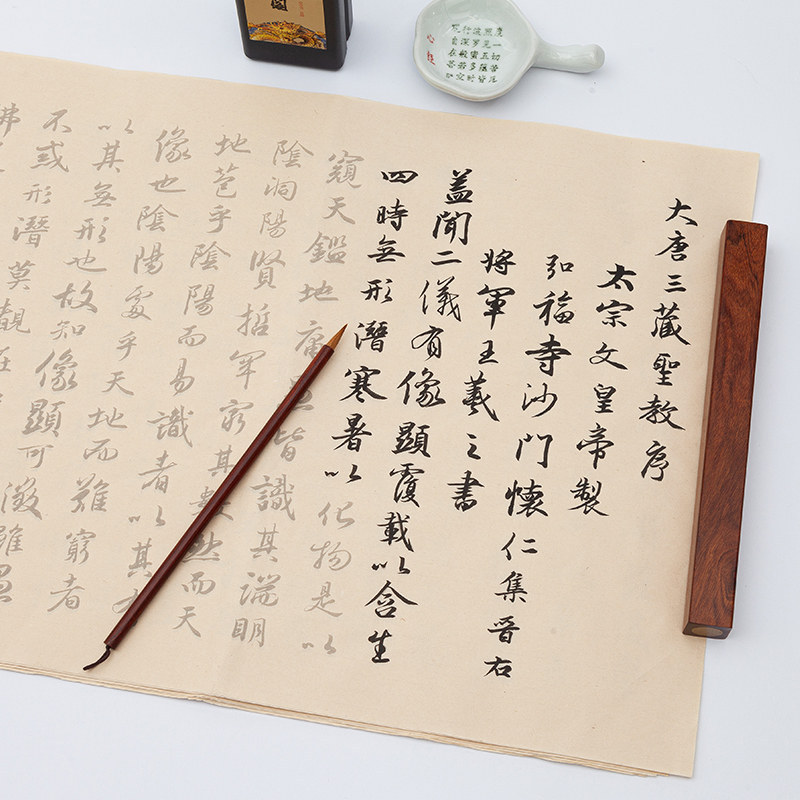 大唐三藏聖教序
太宗文皇帝製
弘福寺沙門懷仁集晉右
將軍王羲之書
蓋聞二儀有像顯覆載以含生
四時無形潛寒暑以化物是以
窺天鑑地庸愚皆識其端明
陰洞陽賢哲罕窮其數然而天
地苞乎陰陽而易識者以其有
像也陰陽處乎天地而難窮者
以其無形也故知像顯可徵雖愚
不惑形潛莫覩在
佛
度一切苦厄
照見五蘊皆
波羅蜜多時
行深般若
心經